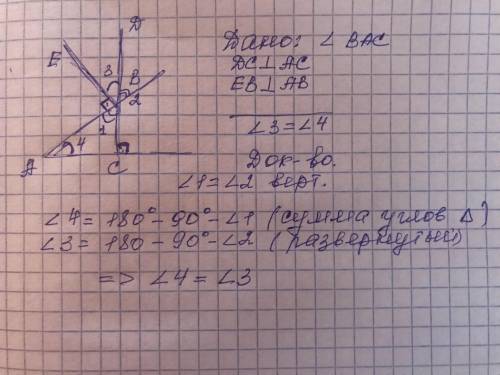 D
E
3
B
2
1
4
A
C
Дано: ∠ BAC
DC⊥AC
EB⊥AB
∠3=∠4
Док-во.
∠1=∠2 верт.
∠4= 180°-90°-∠1 (сумма углов Δ)
∠3= 180-90°-∠2 (развернутый)
=> ∠4=∠3